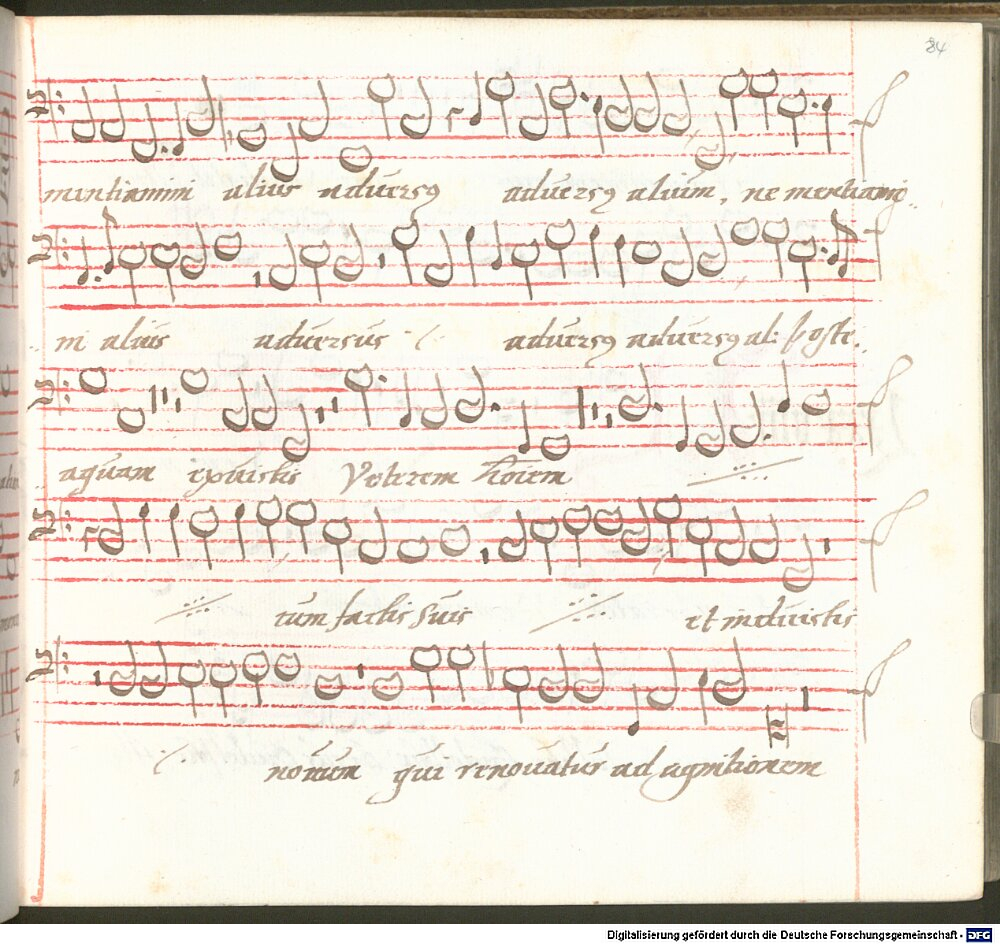 84
mentiamini alius adversꝯ adversꝯ alium, ne mentiami
ni alius adversus adversꝯ adversꝯ al: poste
aquam expuistis Veterem hoiem
cum factis suis et induistis
novum qui renovatur ad agnitionem
Digitalisierung gefördert durch die Deutsche Forschungsgemeinschaft - DFG